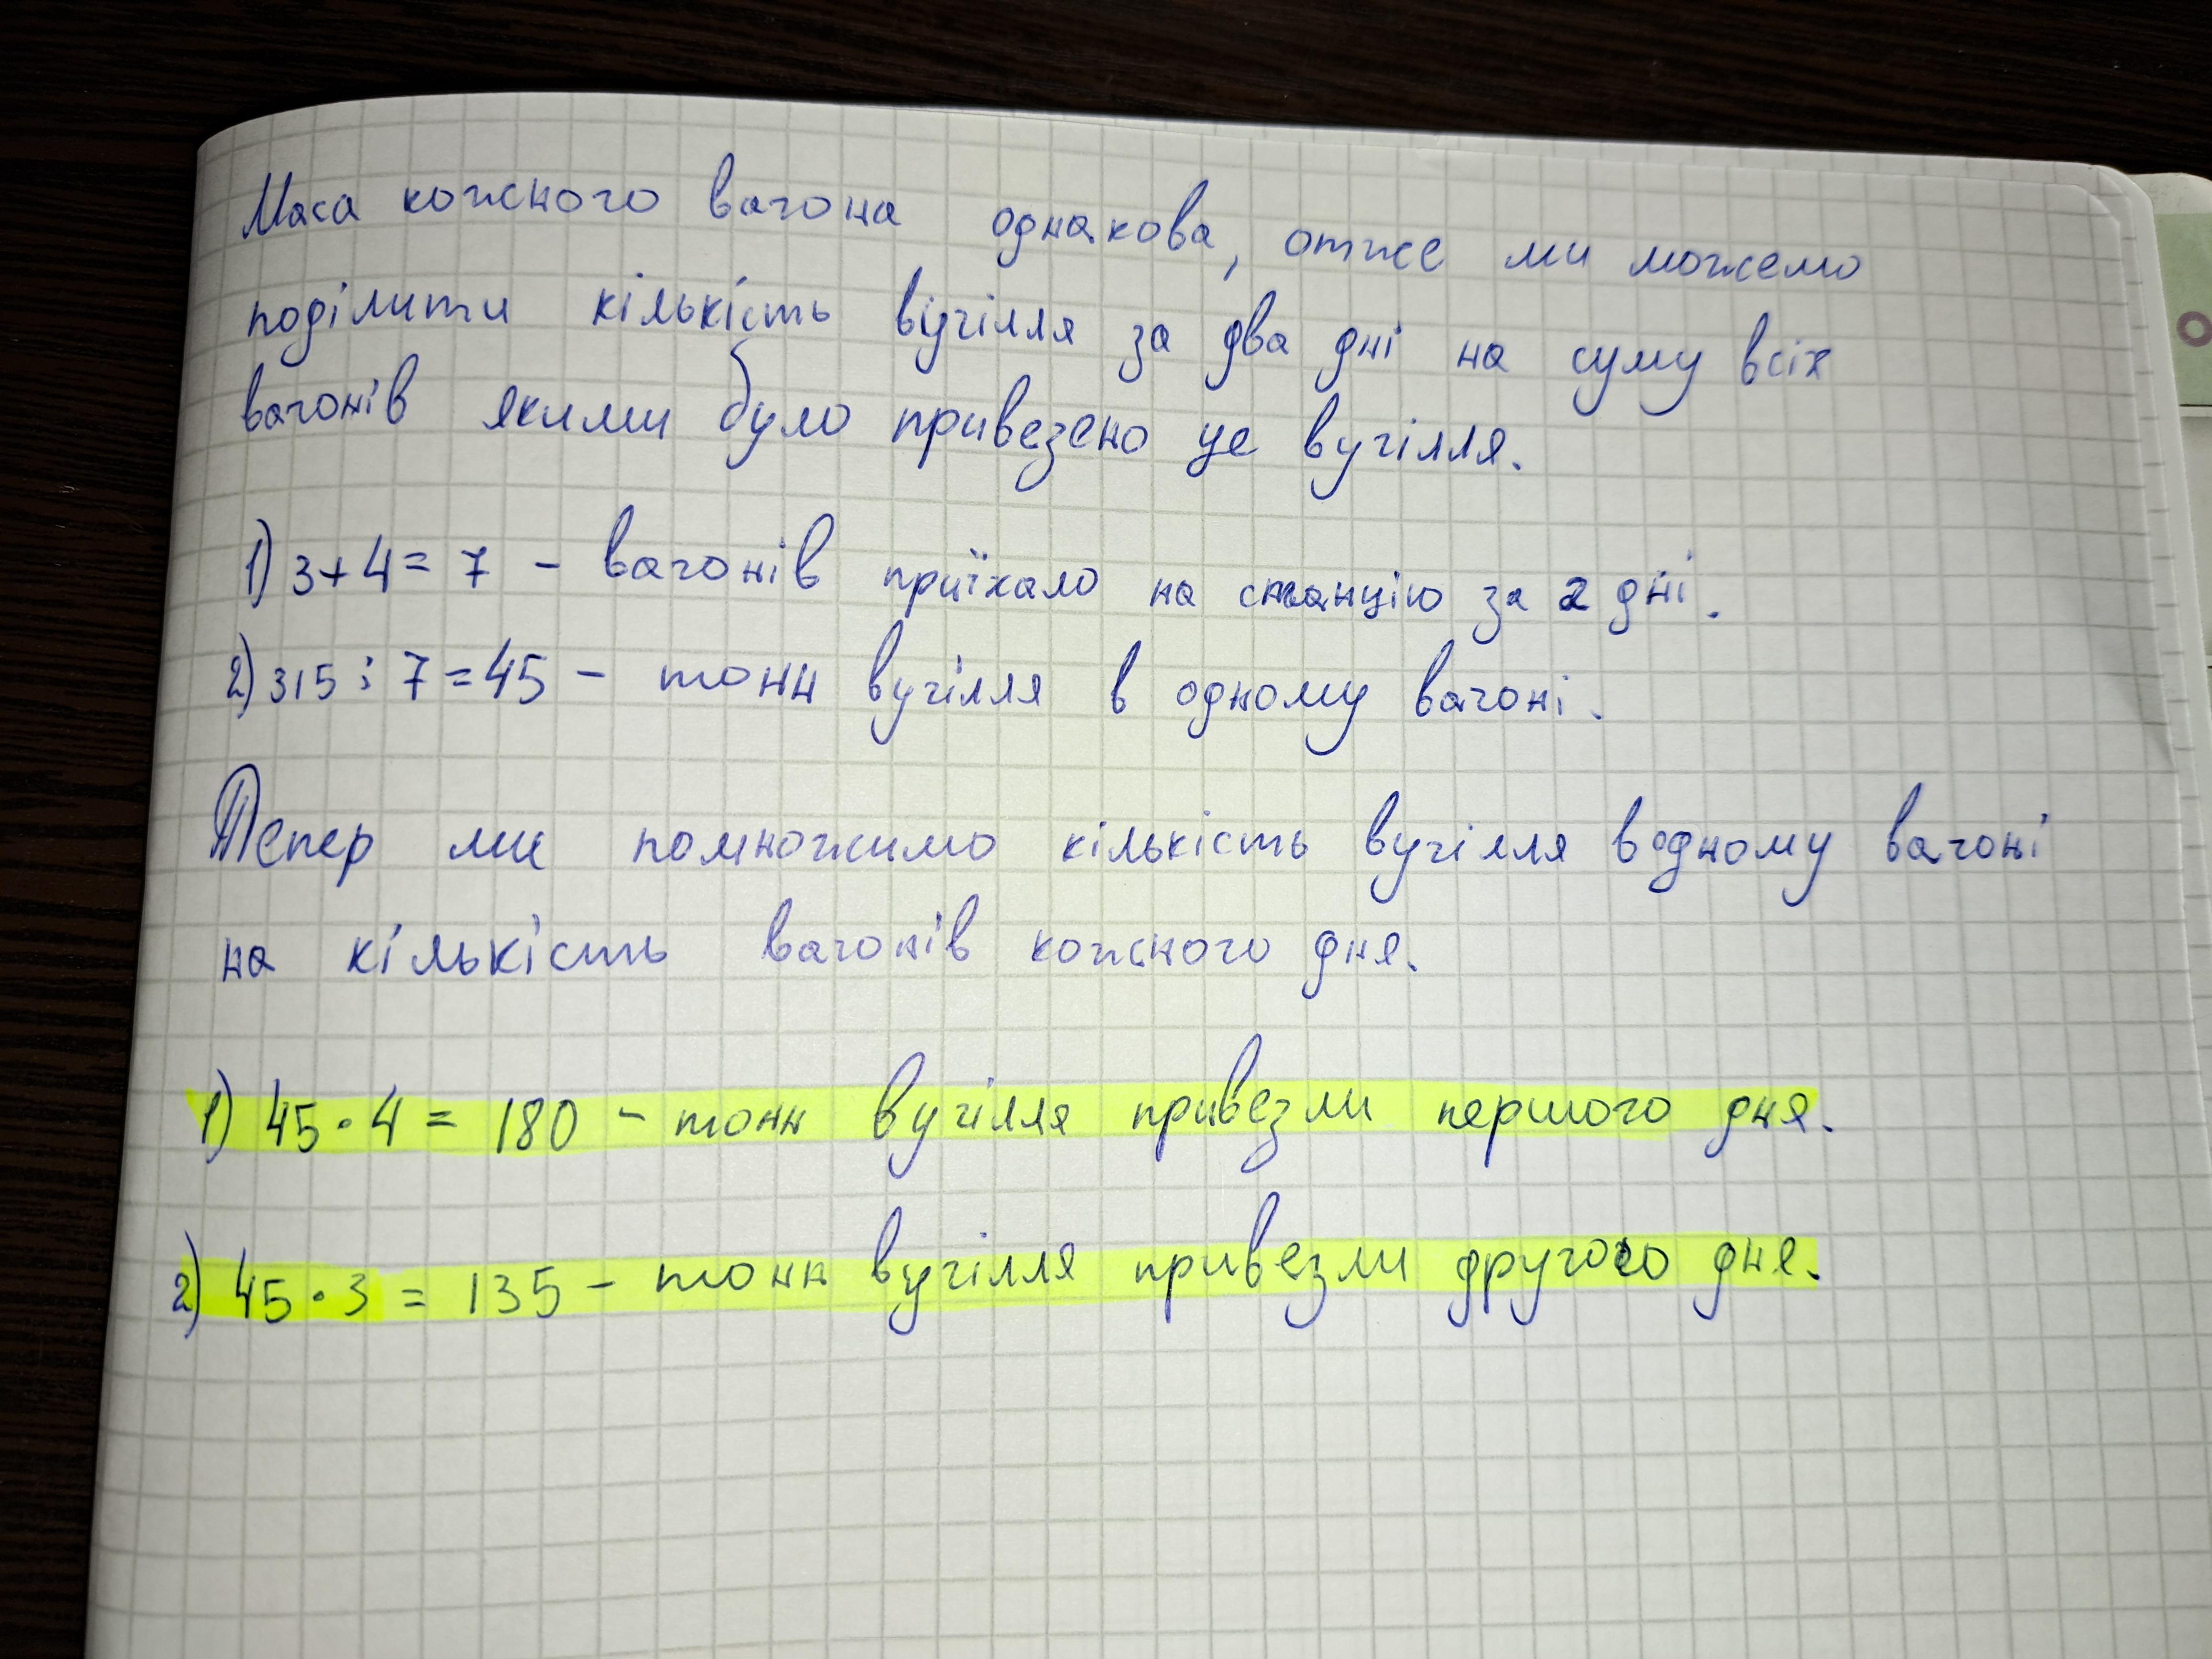 Маса кожного вагона однакова, отже ми можемо
поділити кількість вугілля за два дні на суму всіх
вагонів якими було привезено це вугілля.
1) 3+4=7 - вагонів приїхало на станцію за 2 дні.
2) 315:7=45 - тонн вугілля в одному вагоні.
Тепер ми помножимо кількість вугілля в одному вагоні
на кількість вагонів кожного дня.
1) 45·4=180 - тонн вугілля привезли першого дня.
2) 45·3=135 - тонн вугілля привезли другого дня.